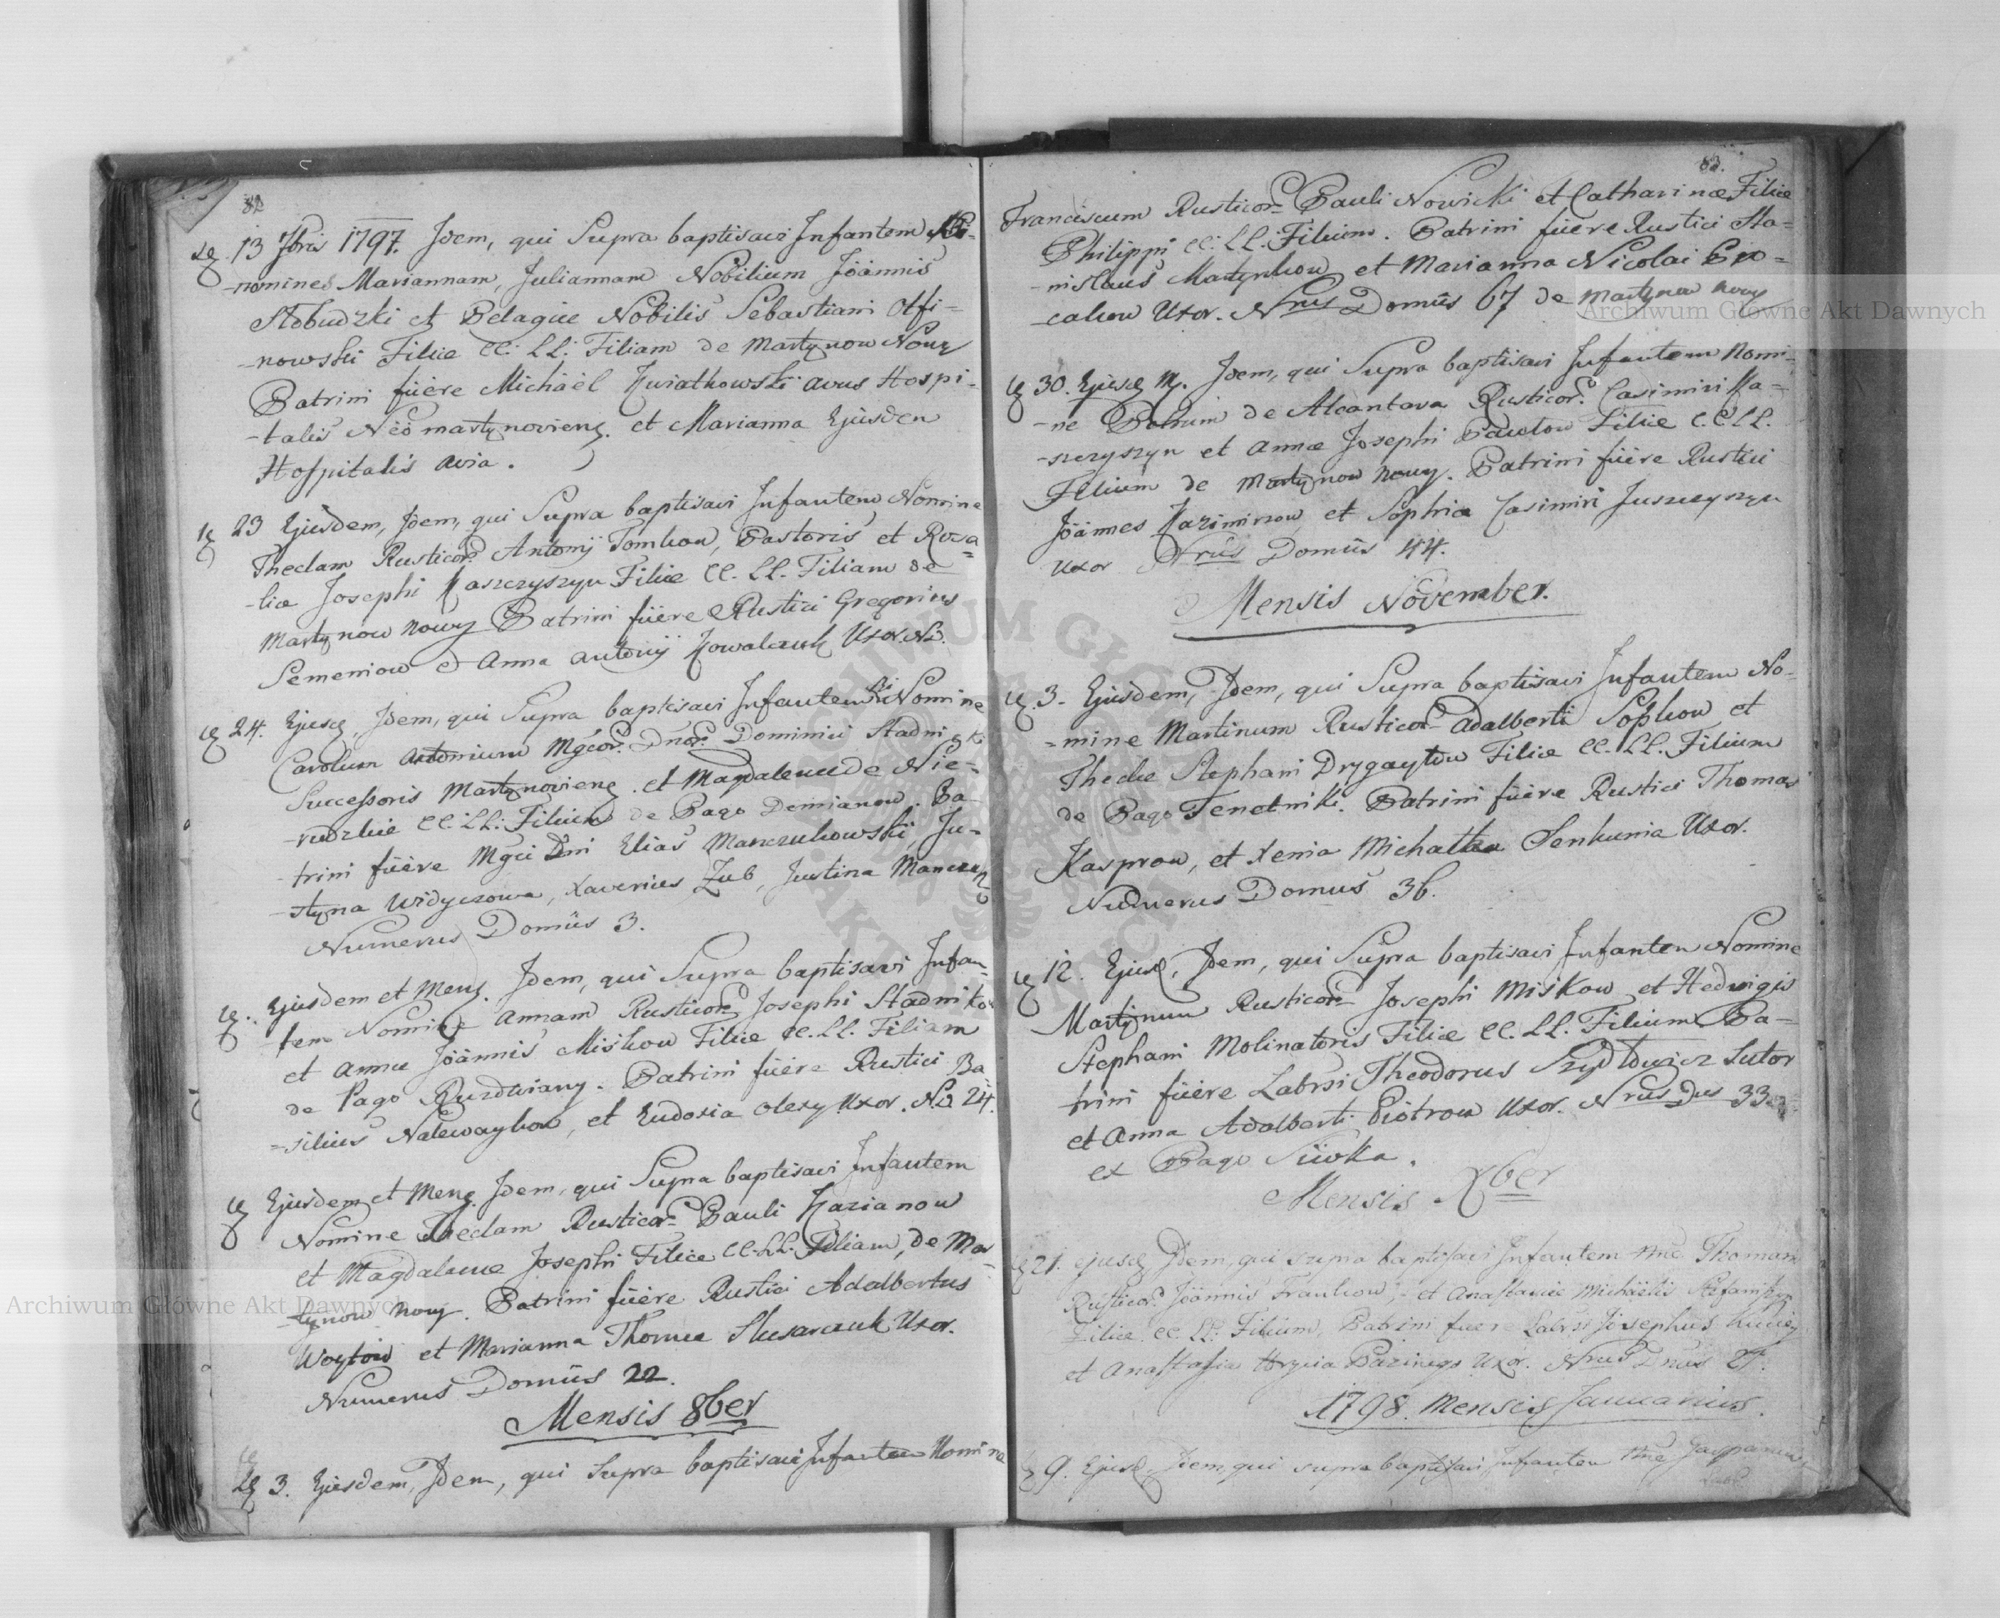 82
13 7bris 1797. Idem, qui Supra baptisavi Infantem Bi-
-nomines Mariannam, Juliannam Nobilium Joannis
Stobudzki et Pelagiæ Nobilis Sebastiani
-nowski Filiæ CC: LL: Filiam de Martynow Nowy
Patrini fuere Michäel Kwiatkowski avus Hospi-
-talis Neo martynoviens. et Marianna Ejusdem
Hospitalis avia.
23 Ejusdem, Idem, qui Supra baptisavi Infantem Nomine
Theclam Rusticor. Antonij Tomkow, Pastoris et Rosa-
-liæ Josephi Kaszczyszyn Filiæ CC. LL. Filiam de
Martynow Nowy Patrini fuere Rustici Gregorius
Semeniow et Anna Antonij Kowalczuk Uxor. No.
24. Ejusd, Idem, qui Supra baptisavi Infantem Bi Nomine
Carolum Antonium Mgcor. Dnor. Dominici Stadnicki
Successoris Martynoviens. et Magdalenæ de Nie-
-rudzkie CC: LL: Filium de Pago Demianow. Pa-
-trini fuere Mgci Dni Elias Manczukowski, Ju-
-styna Widyczowa, Xaverius Zub, Justina
Numerus Domûs 3.
Ejusdem et Mens. Idem, qui Supra baptisavi Infan-
tem Nomine Annam Rusticor. Josephi Stadnikow
et Annæ Joännis Miskow Filiæ CC. LL. Filiam
de Pago Ruzdwiany. Patrini fuere Rustici Ba-
-silius Nalewaykow, et Eudoxia Olexy Uxor. No 24.
Ejusdem et Mens. Idem, qui Supra baptisavi Infantem
Nomine Theclam Rusticor. Pauli Kazianow
et Magdalenæ Josephi Filiæ CC. LL. Filiam, de Mar-
-tynow nowy. Patrini fuere Rustici Adalbertus
Woytow et Marianna Thomæ Slusarczuk Uxor.
Numerus Domûs 22.
Mensis 8ber
3. Ejusdem, Idem, qui Supra baptisavi Infantem Nomine
83.
Franciscum Rusticor. Pauli Nowicki et Catharinæ Filiæ
Philippi CC: LL: Filium. Patrini fuere Rustici Sta-
-nislaus Martynkow et Marianna Nicolai Pro-
-cakow Uxor. Nrus Domûs 67 de Martynow nowy
30. Ejusd M. Idem, qui Supra baptisavi Infantem Nomi-
-ne Petrum de Alcantara Rusticor. Casimiri Ka-
-szczyszyn et Annæ Josephi Pawlow Filiæ C.C LL.
Filium de Martynow nowy. Patrini fuere Rustici
Joännes Kazimirzow et Sophia Casimiri Juszczyszyn
Uxor Nrus Domûs 44.
Mensis November.
3. Ejusdem, Idem, qui Supra baptisavi Infantem No-
-mine Martinum Rusticor. Adalberti Sopkow et
Theclæ Stephani Drygaytow Filiæ CC. LL. Filium
de Pago Tenetniki. Patrini fuere Rustici Thomas
Kasprow, et Xenia Michalka Senkunia Uxor.
Numerus Domûs 36.
12. Ejusd, Idem, qui Supra baptisavi Infantem Nomine
Martynum Rusticor. Josephi Miskow et Hedvigis
Stephani Molinatoris Filiæ CC. LL. Filium Pa-
trini fuere Labrsi Theodorus Szydlowicz Sutor
et Anna Adalberti Piotrow Uxor. Nrus Dus 33.
ex Pago Siwka.
Mensis Xber
21. ejusd Idem, qui supra baptisavi Infantem Nne Thomam
Rusticor. Joännis Frankow, et Anastasiæ Michäelis
Filiæ CC. LL. Filium, Patrini fuere Labrsi Josephus
et Anastasia Hrycia Uxor. Nrus Dus 27.
1798. Mensis Januarius.
9. Ejusd, Idem, qui supra baptisavi Infantem Nne Gasparum
Labr
Archiwum Główne Akt Dawnych
Archiwum Główne Akt Dawnych